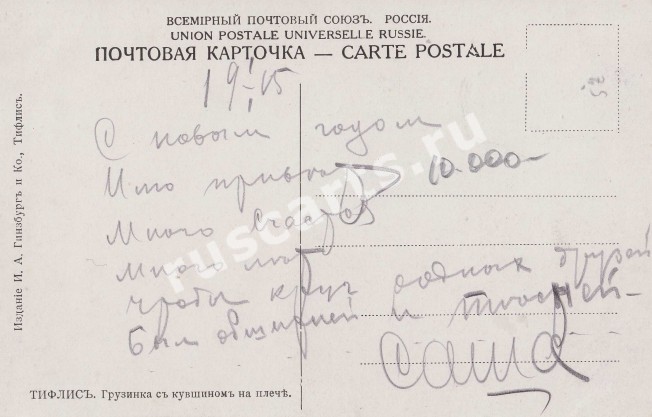 ВСЕМІРНЫЙ ПОЧТОВЫЙ СОЮЗЪ. РОССІЯ.
UNION POSTALE UNIVERSELLE RUSSIE.
ПОЧТОВАЯ КАРТОЧКА — CARTE POSTALE
19 15
С новым годом
Шлю привет 10.000-
Много счастья
много
чтобы круг родных друзей
Был обширней и тесней-
Саша
Изданіе И. А. Гинзбургъ и Ко., Тифлисъ.
ТИФЛИСЪ. Грузинка съ кувшиномъ на плечѣ.
ruscarts.ru